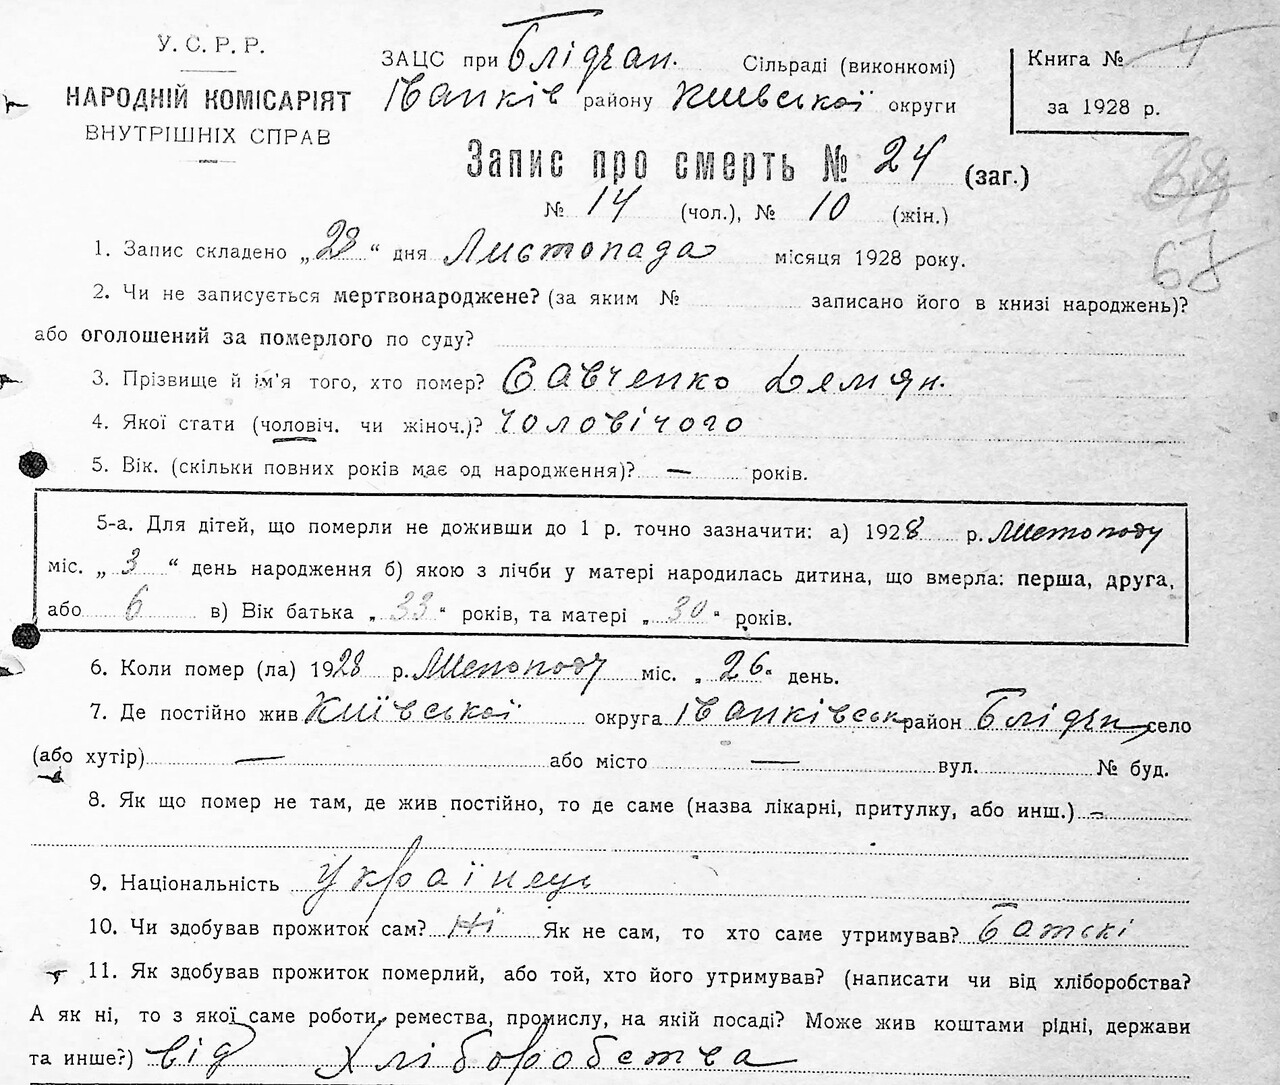 У. С. Р. Р.
НАРОДНІЙ КОМІСАРІЯТ
ВНУТРІШНІХ СПРАВ
ЗАЦС при Блідчан. Сільраді (виконкомі)
Іванків району Київської округи
Книга № 4
за 1928 р.
Запис про смерть № 24 (заг.)
№ 14 (чол.), № 10 (жін.)
68
1. Запис складено „28“ дня Листопада місяця 1928 року.
2. Чи не записується мертвонароджене? (за яким № записано його в книзі народжень)?
або оголошений за померлого по суду?
3. Прізвище й ім'я того, хто помер? Савченко Демян.
4. Якої стати (чоловіч. чи жіноч.)? Чоловічого
5. Вік. (скільки повних років має од народження)? — років.
5-а. Для дітей, що померли не доживши до 1 р. точно зазначити: а) 1928 р. Листопаду
міс. „3“ день народження б) якою з лічби у матері народилась дитина, що вмерла: перша, друга,
або 6 в) Вік батька „33“ років, та матері „30“ років.
6. Коли помер (ла) 1928 р. Листопаду міс. „26“ день.
7. Де постійно жив Київської округа Іванківськ район Блідчи село
(або хутір) — або місто — вул. № буд.
8. Як що помер не там, де жив постійно, то де саме (назва лікарні, притулку, або инш.) —
9. Національність Українець
10. Чи здобував прожиток сам? Ні Як не сам, то хто саме утримував? Батькі
11. Як здобував прожиток померлий, або той, хто його утримував? (написати чи від хліборобства?
А як ні, то з якої саме роботи, ремества, промислу, на якій посаді? Може жив коштами рідні, держави
та инше?) від Хліборобства